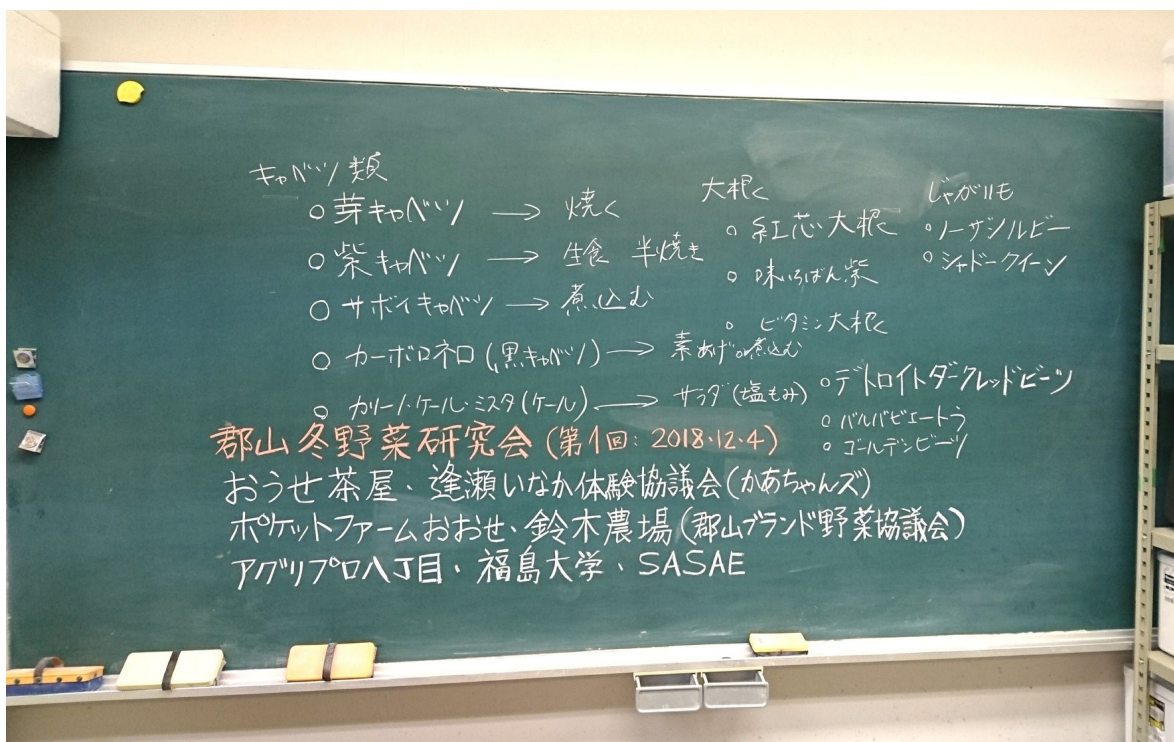 キャベツ類
○芽キャベツ → 焼く
○紫キャベツ → 生食 半焼き
○サボイキャベツ → 煮込む
○カーボロネロ(黒キャベツ) → 素あげ。煮込む
○カリーノ・ケール・ミスタ(ケール) → サラダ(塩もみ)
大根く
○紅芯大根
○味いちばん紫
○ビタミン大根
じゃがいも
○ノーザンルビー
○シャドークイーン
○デトロイトダークレッドビーツ
○バルバビエートラ
○ゴールデンビーツ
郡山冬野菜研究会(第1回:2018.12.4)
おうせ茶屋・逢瀬いなか体験協議会(かあちゃんズ)
ポケットファームおおせ・鈴木農場(郡山ブランド野菜協議会)
アグリプロ八丁目・福島大学・SASAE